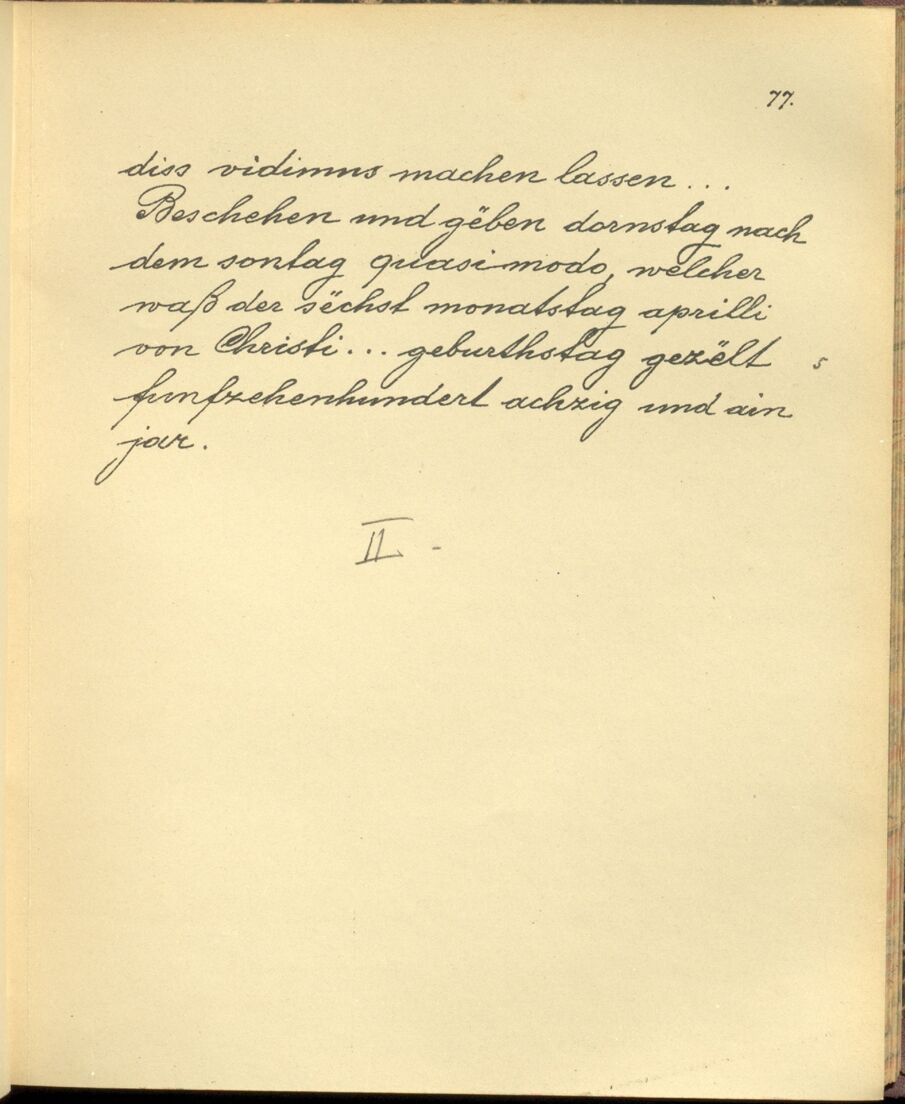 77.
diss vidimus machen lassen...
Beschehen und gëben dornstag nach
dem sontag quasimodo, welcher
waß der sëchst monatstag aprilli
von Christi... geburthstag gezëlt 5
funfzehenhundert achzig und ain
jar.
II -